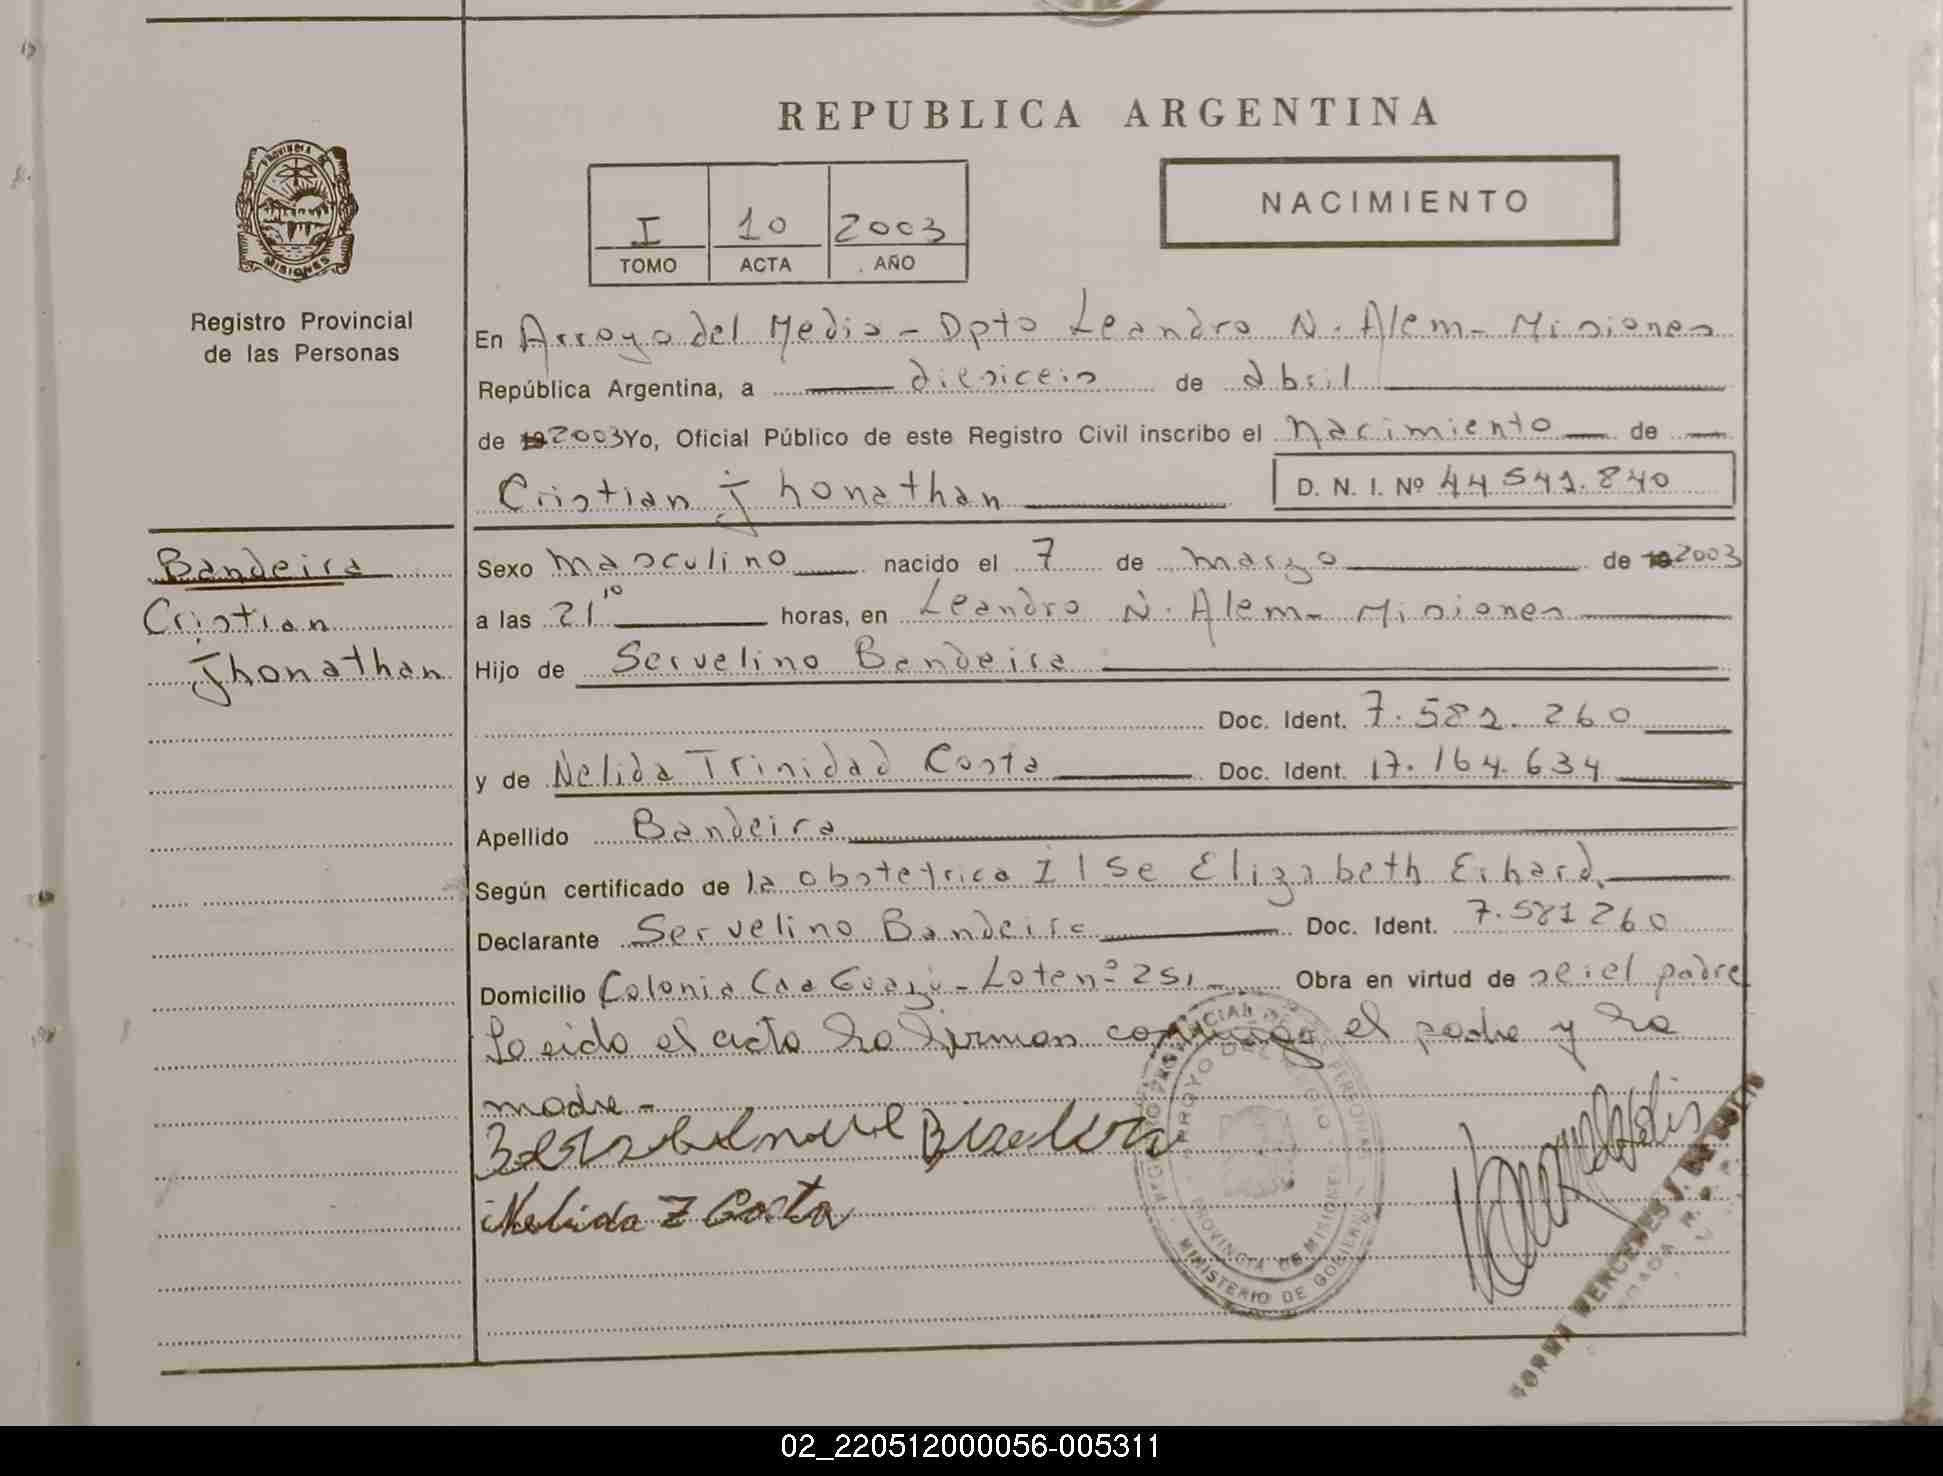 REPUBLICA ARGENTINA
PROVINCIA DE
MISIONES
Registro Provincial
de las Personas
I 10 2003
TOMO ACTA AÑO
NACIMIENTO
En Arroyo del Medio - Dpto Leandro N. Alem - Misiones
República Argentina, a diesiceis de abril
de 2003 Yo, Oficial Público de este Registro Civil inscribo el Nacimiento de
Cristian Jhonathan D. N. I. Nº 44 541.840
Bandeira
Cristian
Jhonathan
Sexo Masculino nacido el 7 de Marzo de 2003
a las 21 10 horas, en Leandro N. Alem - Misiones
Hijo de Servelino Bandeira
Doc. Ident. 7.581.260
y de Nelida Trinidad Costa Doc. Ident. 17.164.634
Apellido Bandeira
Según certificado de la obstetrica Ilse Elizabeth Erhard.
Declarante Servelino Bandeira Doc. Ident. 7.581260
Domicilio Colonia Caa Guazú - Lote nº 251 Obra en virtud de ser el padre
Leido el acta la firman conmigo el padre y la
madre -
Nelida T Costa
ARROYO DEL MEDIO
PROVINCIA DE MISIONES
MINISTERIO DE GOBIERNO
NORMA MERCEDES J.
02_220512000056-005311